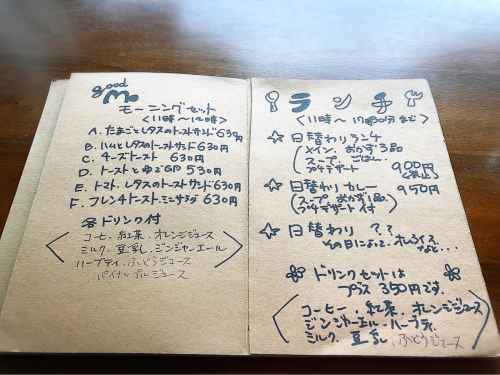 good
Mo
モーニングセット
<11時〜12時>
A. たまごとレタスのトーストサンド 630円
B. ハムとレタスのトーストサンド 630円
C. チーズトースト 630円
D. トーストとゆで卵 530円
E. トマト、レタスのトーストサンド 630円
F. フレンチトースト ミニサラダ 630円
各ドリンク付
コーヒー、紅茶、オレンジジュース
ミルク、豆乳、ジンジャーエール
ハーブティ、ぶどうジュース
パイナップルジュース
ランチ
<11時〜17時30分まで>
日替わりランチ
(メイン、おかず3品
スープ ごはん
プチデザート
900円
日替わりカレー 950円
(スープ、おかず1品、
プチデザート付)
日替わり ??
その日によって、オムライス
など...
ドリンクセットは
プラス 350円です。
コーヒー、紅茶、オレンジジュース
ジンジャーエール、ハーブティ
ミルク、豆乳、ぶどうジュース